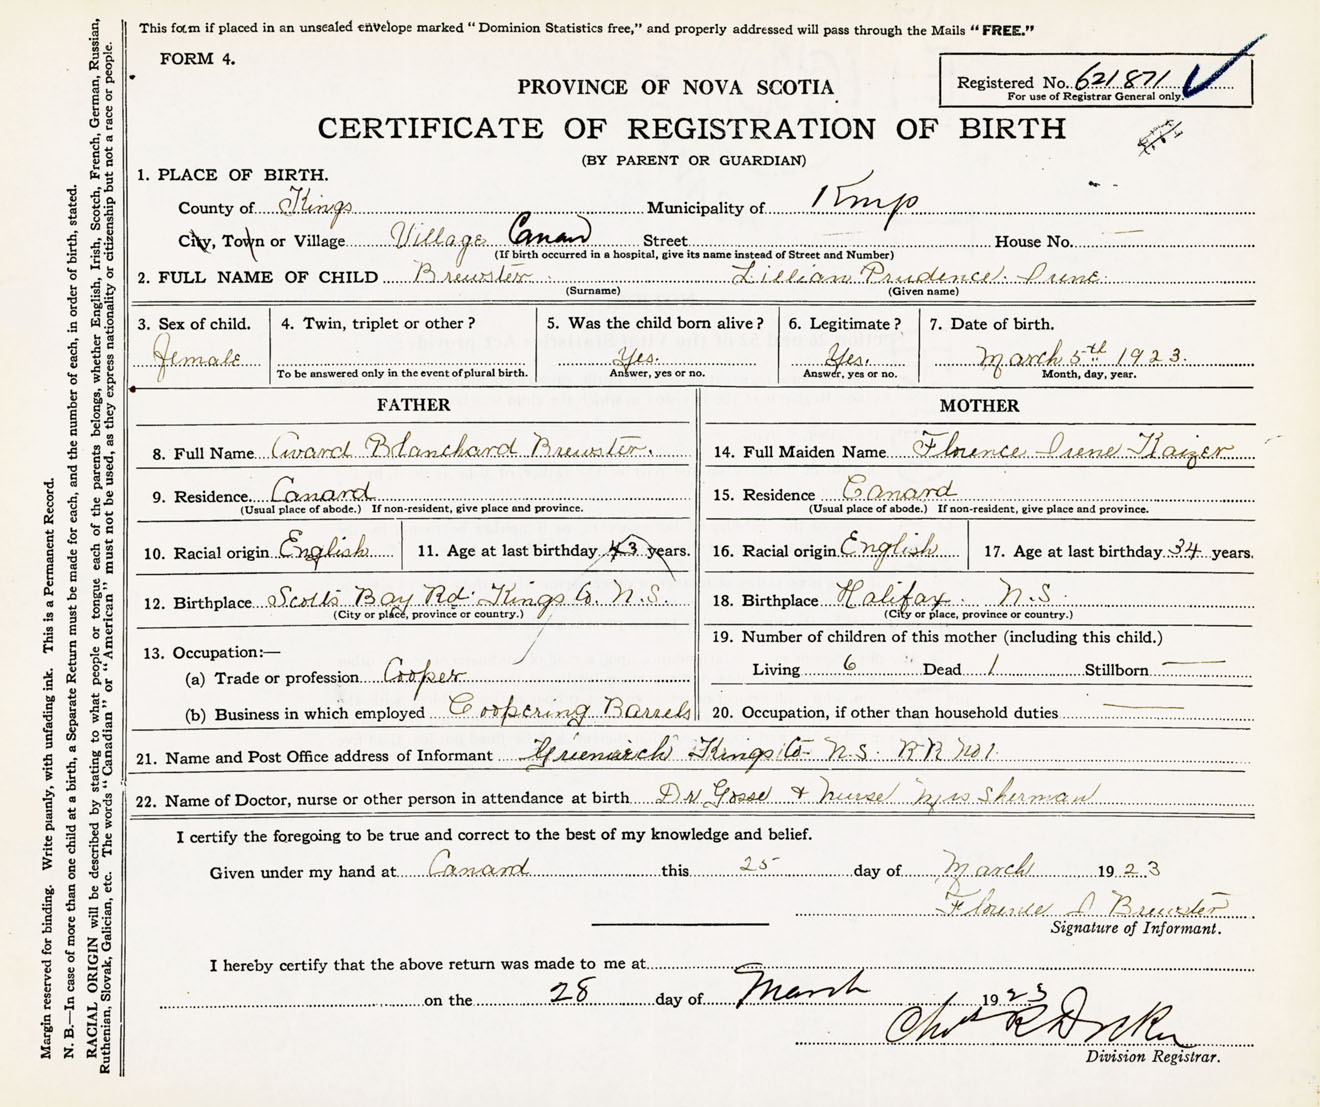 This form if placed in an unsealed envelope marked "Dominion Statistics free," and properly addressed will pass through the Mails "FREE."
FORM 4.
Registered No. 621871
For use of Registrar General only.
PROVINCE OF NOVA SCOTIA
CERTIFICATE OF REGISTRATION OF BIRTH
(BY PARENT OR GUARDIAN)
1. PLACE OF BIRTH.
County of Kings Municipality of Kings
City, Town or Village Village Canard Street House No.
(If birth occurred in a hospital, give its name instead of Street and Number)
2. FULL NAME OF CHILD Brewster Lillian Prudence Irene
(Surname) (Given name)
3. Sex of child. 4. Twin, triplet or other? 5. Was the child born alive? 6. Legitimate? 7. Date of birth.
Female Yes. Yes. March 5th 1923.
To be answered only in the event of plural birth. Answer, yes or no. Answer, yes or no. Month, day, year.
FATHER MOTHER
8. Full Name Avard Blanchard Brewster. 14. Full Maiden Name Florence Irene Kaizer
9. Residence. Canard 15. Residence Canard
(Usual place of abode.) If non-resident, give place and province. (Usual place of abode.) If non-resident, give place and province.
10. Racial origin English 11. Age at last birthday 43 years. 16. Racial origin English 17. Age at last birthday 34 years.
12. Birthplace Scotts Bay Rd. Kings Co. N.S. 18. Birthplace Halifax N.S
(City or place, province or country.) (City or place, province or country.)
13. Occupation:— 19. Number of children of this mother (including this child.)
(a) Trade or profession Cooper Living 6 Dead 1 Stillborn
(b) Business in which employed Coopering Barrels 20. Occupation, if other than household duties
21. Name and Post Office address of Informant Kings Co- N.S. RR No1.
22. Name of Doctor, nurse or other person in attendance at birth Dr Gosse + Nurse Mrs Sherman
I certify the foregoing to be true and correct to the best of my knowledge and belief.
Given under my hand at Canard this 25 day of March 1923
Florence I Brewster
Signature of Informant.
I hereby certify that the above return was made to me at
on the 28 day of March 1923
Division Registrar.
Margin reserved for binding. Write plainly, with unfading ink. This is a Permanent Record.
N. B.—In case of more than one child at a birth, a Separate Return must be made for each, and the number of each, in order of birth, stated.
RACIAL ORIGIN will be described by stating to what people or tongue each of the parents belongs, whether English, Irish, Scotch, French, German, Russian,
Ruthenian, Slovak, Galician, etc. The words "Canadian" or "American" must not be used, as they express nationality or citizenship but not a race or people.